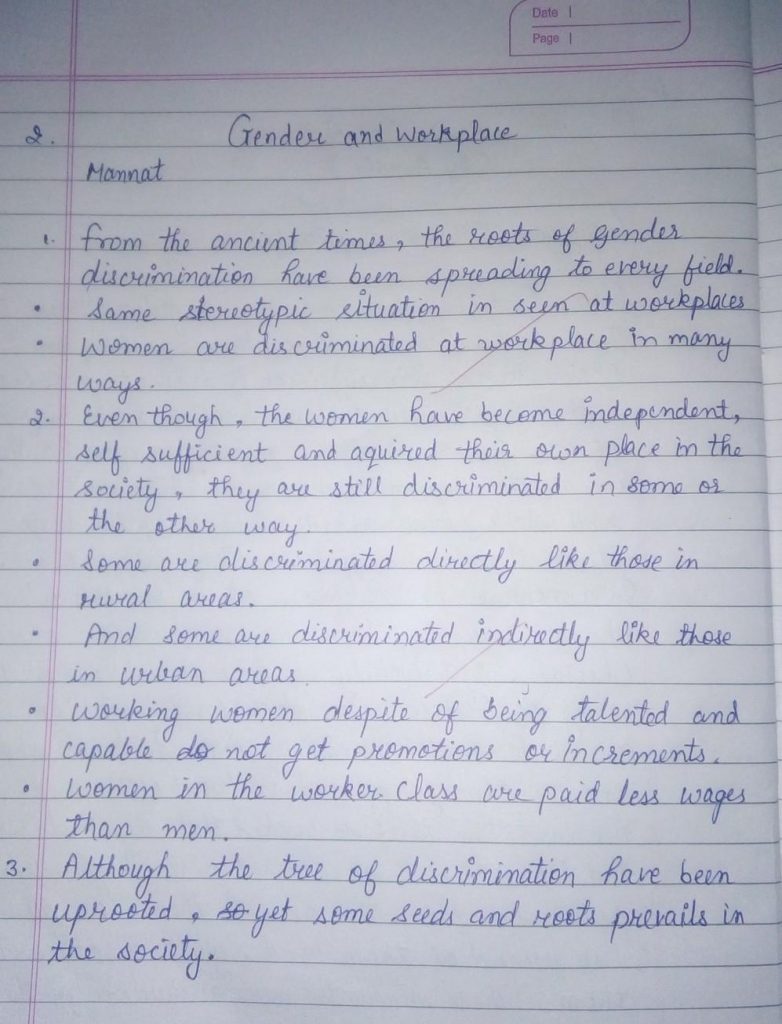 Date
Page
2. Gender and Workplace
Mannat
1. from the ancient times, the roots of gender
discrimination have been spreading to every field.
• Same stereotypic situation in seen at workplaces
• Women are discriminated at workplace in many
ways.
2. Even though, the women have become independent,
self sufficient and aquired their own place in the
society, they are still discriminated in some or
the other way.
• Some are discriminated directly like those in
rural areas.
• And some are discriminated indirectly like those
in urban areas
• Working women despite of being talented and
capable do not get promotions or increments.
• Women in the worker class are paid less wages
than men.
3. Although the tree of discrimination have been
uprooted, so yet some seeds and roots prevails in
the society.